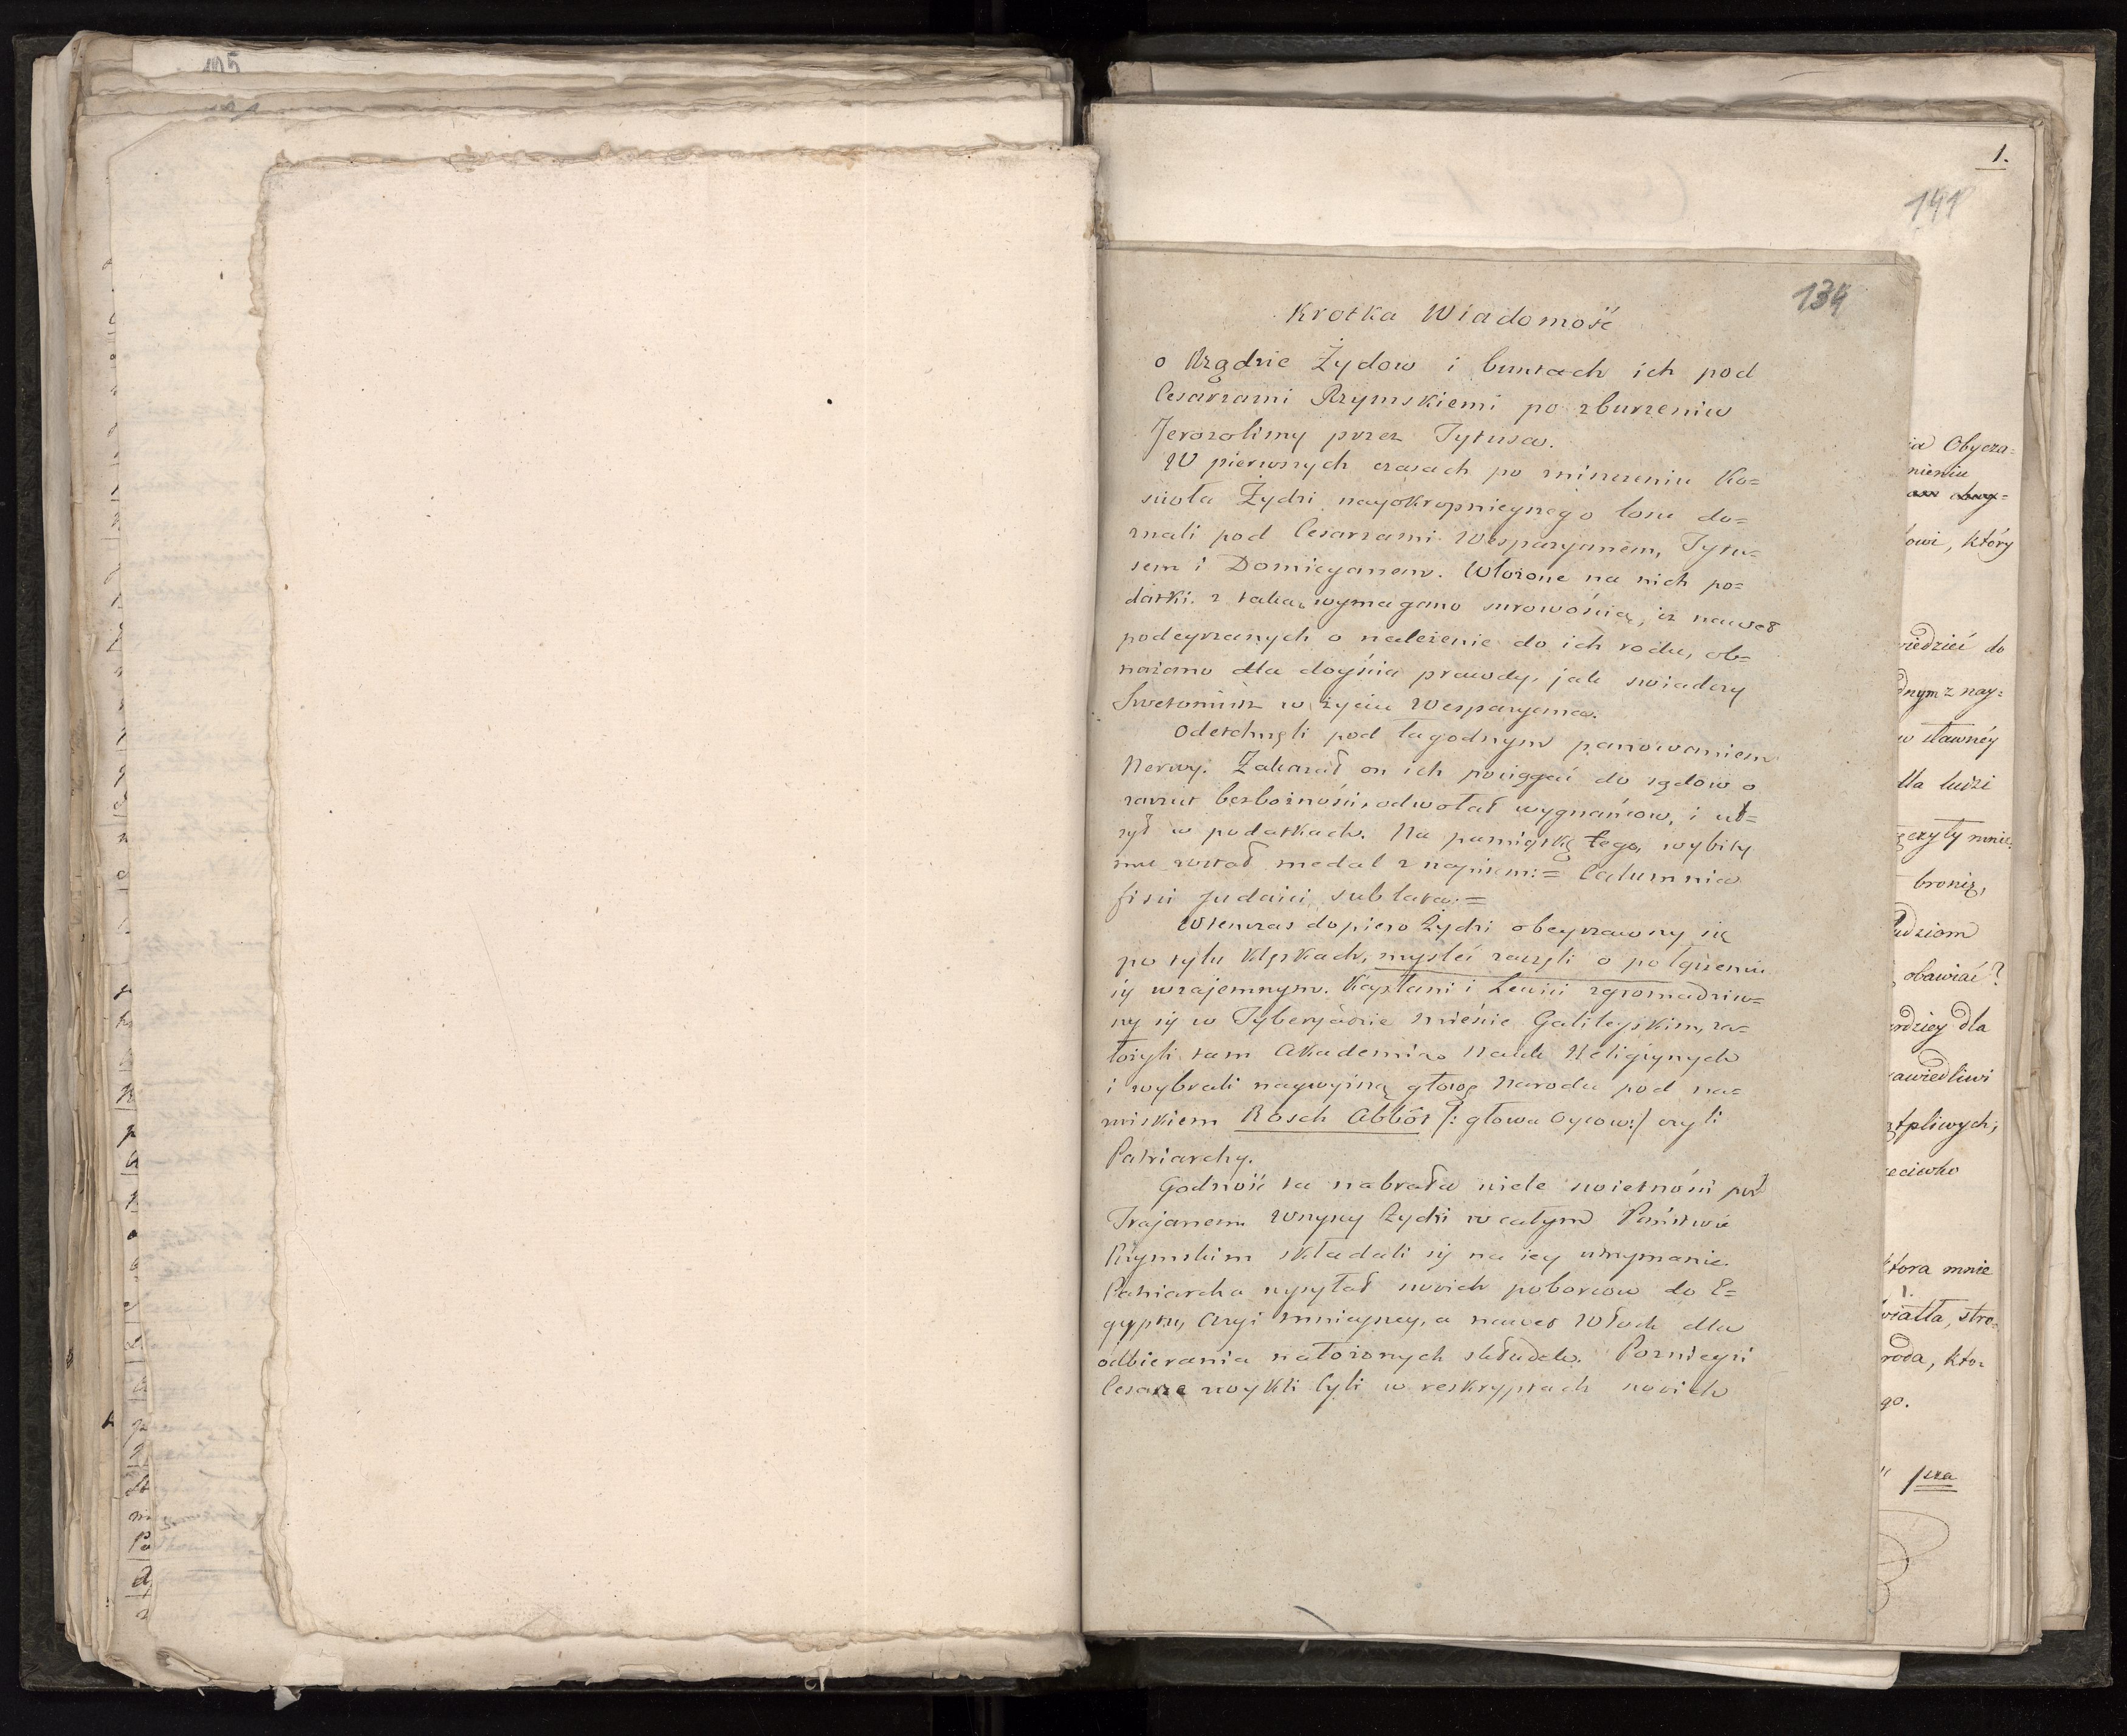 105
1.
141
134
Krotka Wiadomość
o Rządzie Żydow i buntach ich pod
Cesarzami Rzymskiemi po zburzeniu
Jerozolimy przez Tytusa.
W pierwszych czasach po zniszczeniu Ko=
scioła Żydzi nayokropnieyszego losu do=
znali pod Cesarzami Wespazyanem, Tytu=
sem i Domicyanem. Włożone na nich po=
datki z taką wymagano surowością, iż nawet
podeyrzanych o należenie do ich rodu, ob=
nażano dla doyścia prawdy, jak swiadczy
Swetoniusz w życiu Wespazyana.
Odetchnęli pod łagodnym panowaniem
Nerwy. Zakazał on ich pociągać do sądow o
zarzut bezbożności, odwołał wygnańcow, i ul=
żył w podatkach. Na pamiątkę tego, wybity
mu został medal z napisem:= Calumnia
fisci Judaici sublata.=
Wtenczas dopiero Żydzi obeyrzawszy się
po tylu klęskach, mysleć zaczęli o połączeniu
się wzajemnym. Kapłani i Lewici zgromadziw=
szy się w Tyberyadzie mieście Galileyskim, za=
łożyli tam Akademią Nauk Religiynych
i wybrali naywyższą głowę Narodu pod na=
zwiskiem Rosch Abbôt /: głowa Oycow:/ czyli
Patriarchy.
Godność ta nabrała wiele swietności pod
Trajanem Wszyscy Żydzi w całym Państwie
Rzymskim składali się na iey utrzymanie.
Patriarcha wysyłał swoich poborcow do E=
gyptu, Azyi mnieyszey, a nawet Włoch dla
odbierania nałożonych składek. Poznieysi
Cesarze zwykli byli w reskryptach swoich
ia Obycza=
nieniu
owi, który
wiedzieć do
dnym z nay=
w sławnéy
dla ludzi
ęczyły mnie
bronią,
udziom
obawiać?
rdziey dla
awiedliwi
ątpliwych;
zeciwko
która mnie
wiatła, stro=
roda, kto=
go.